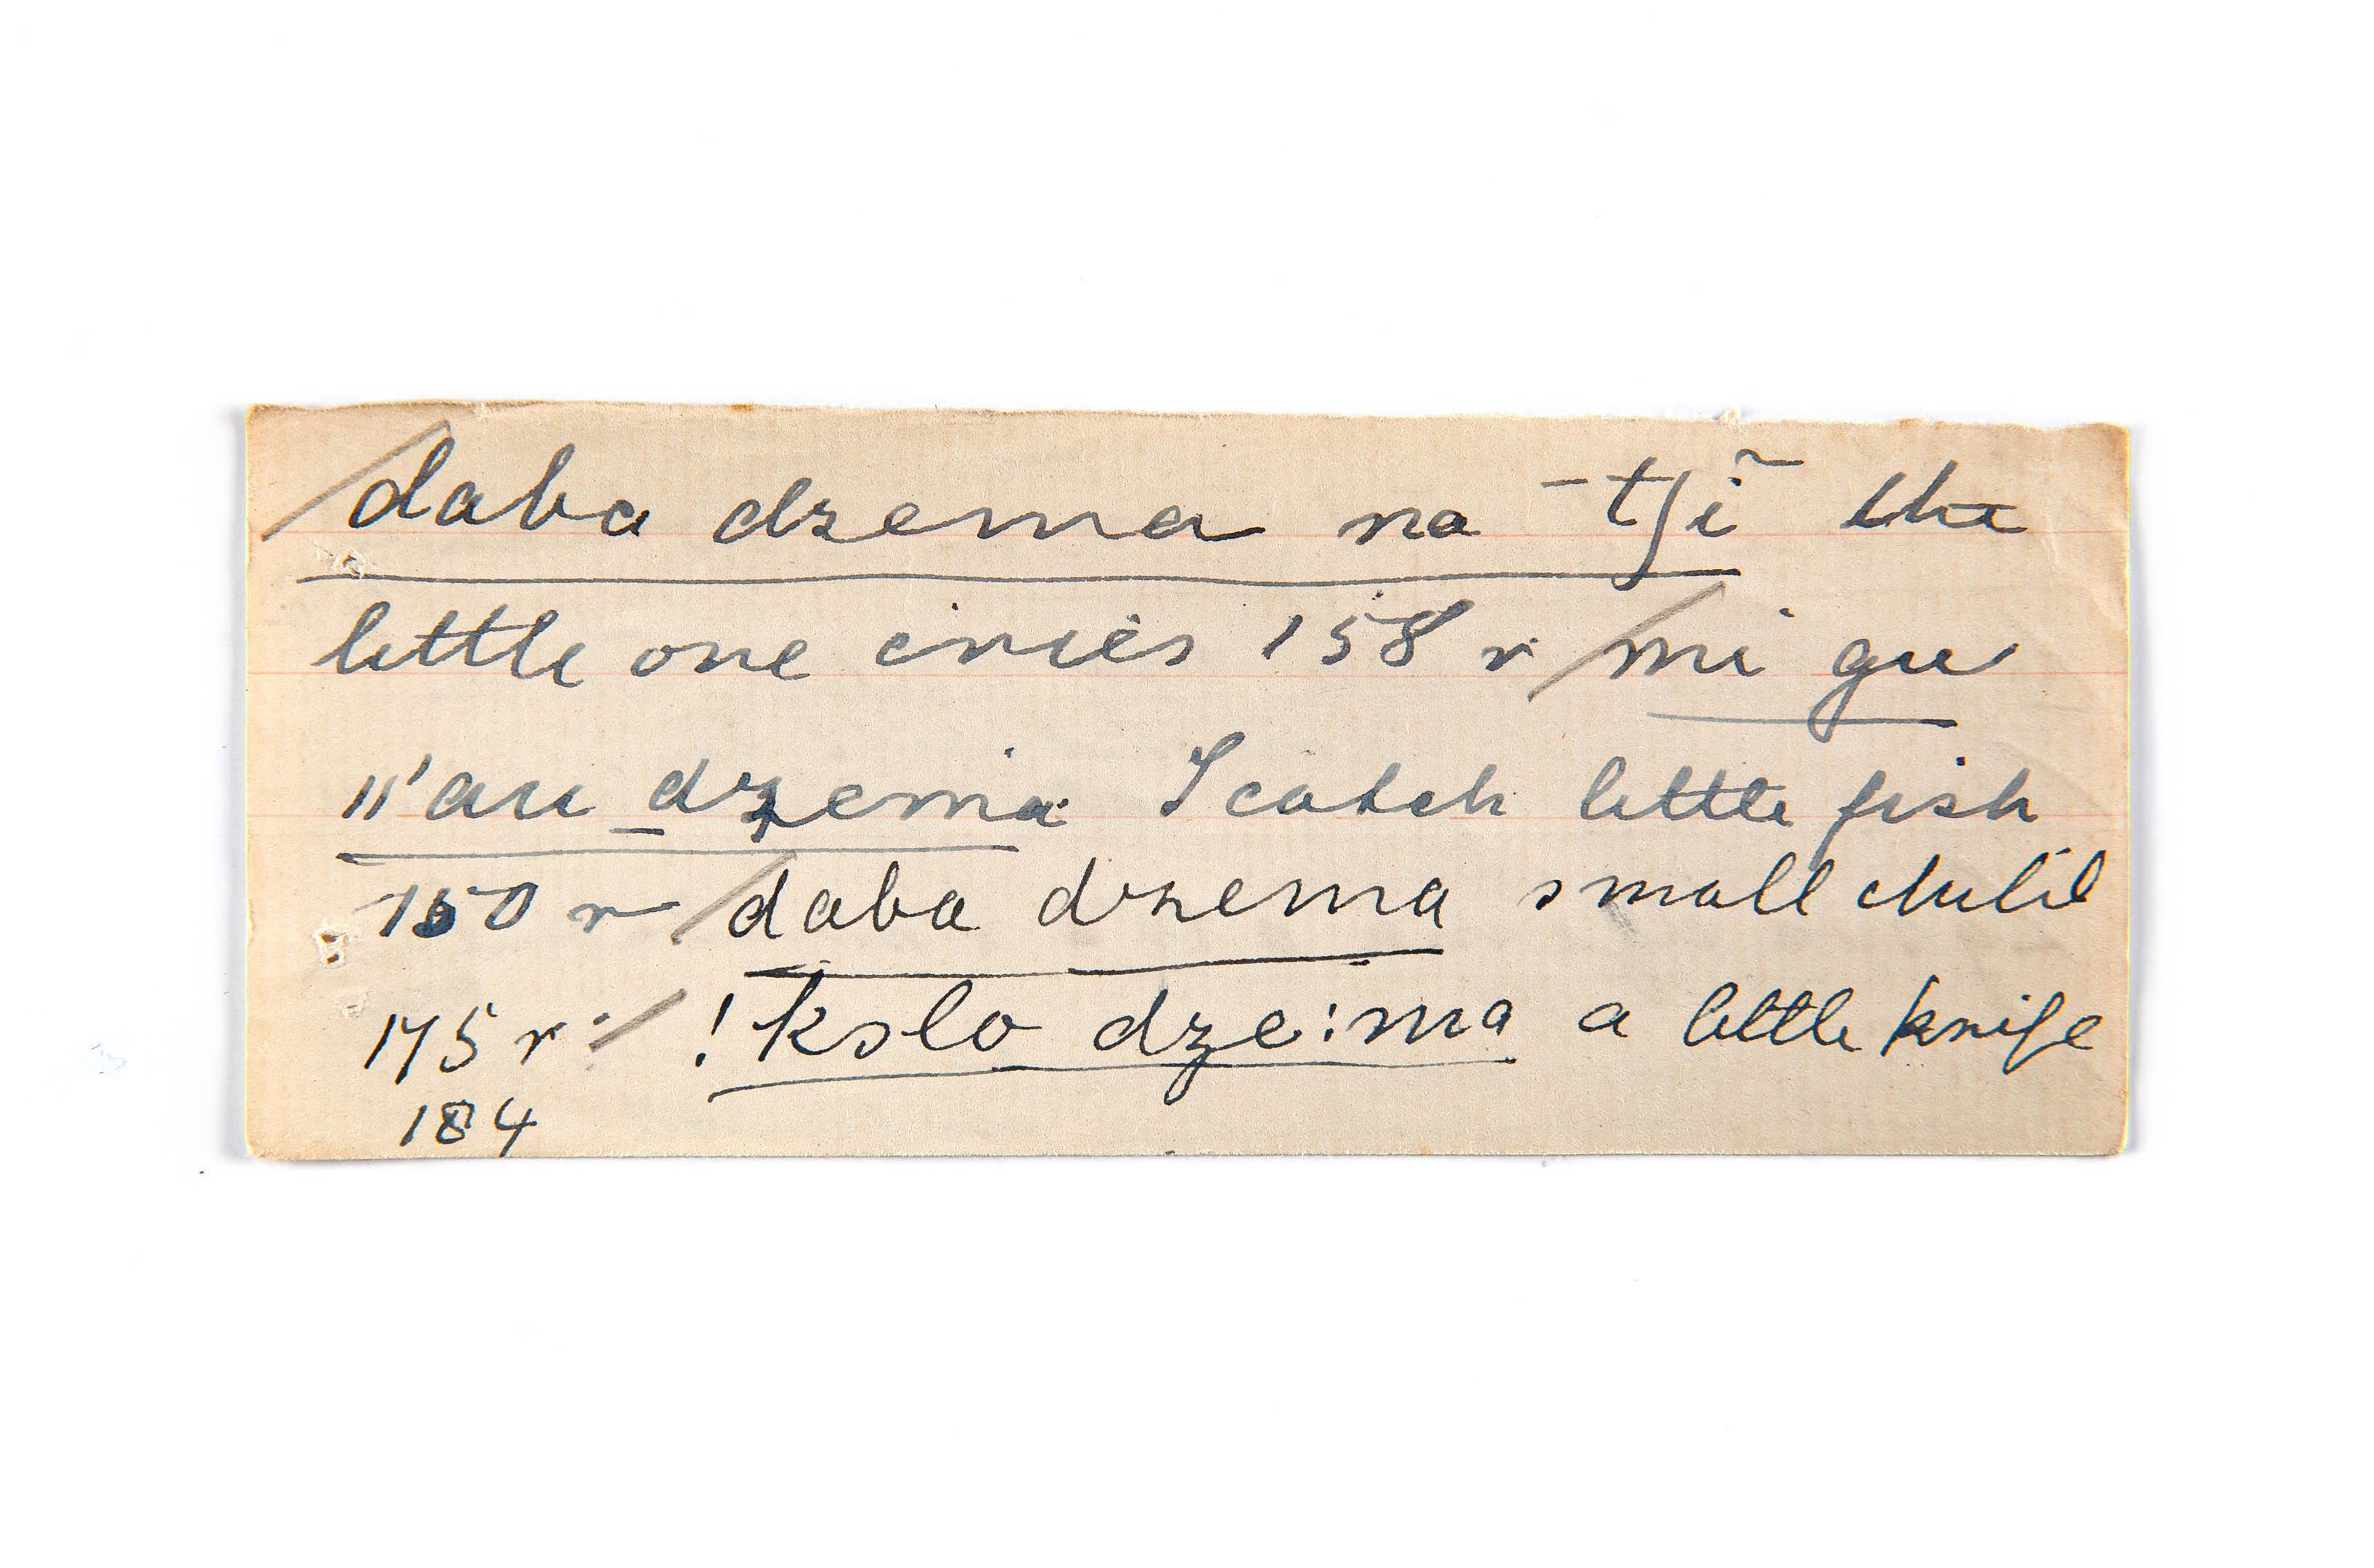 /daba dzema na ¯tʃĩ the
little one cries 158 r /mi gu
ǁ'au_dzema I catch little fish
150 r /daba dzema small child
175 r /!kslo dze:ma a little knife
184